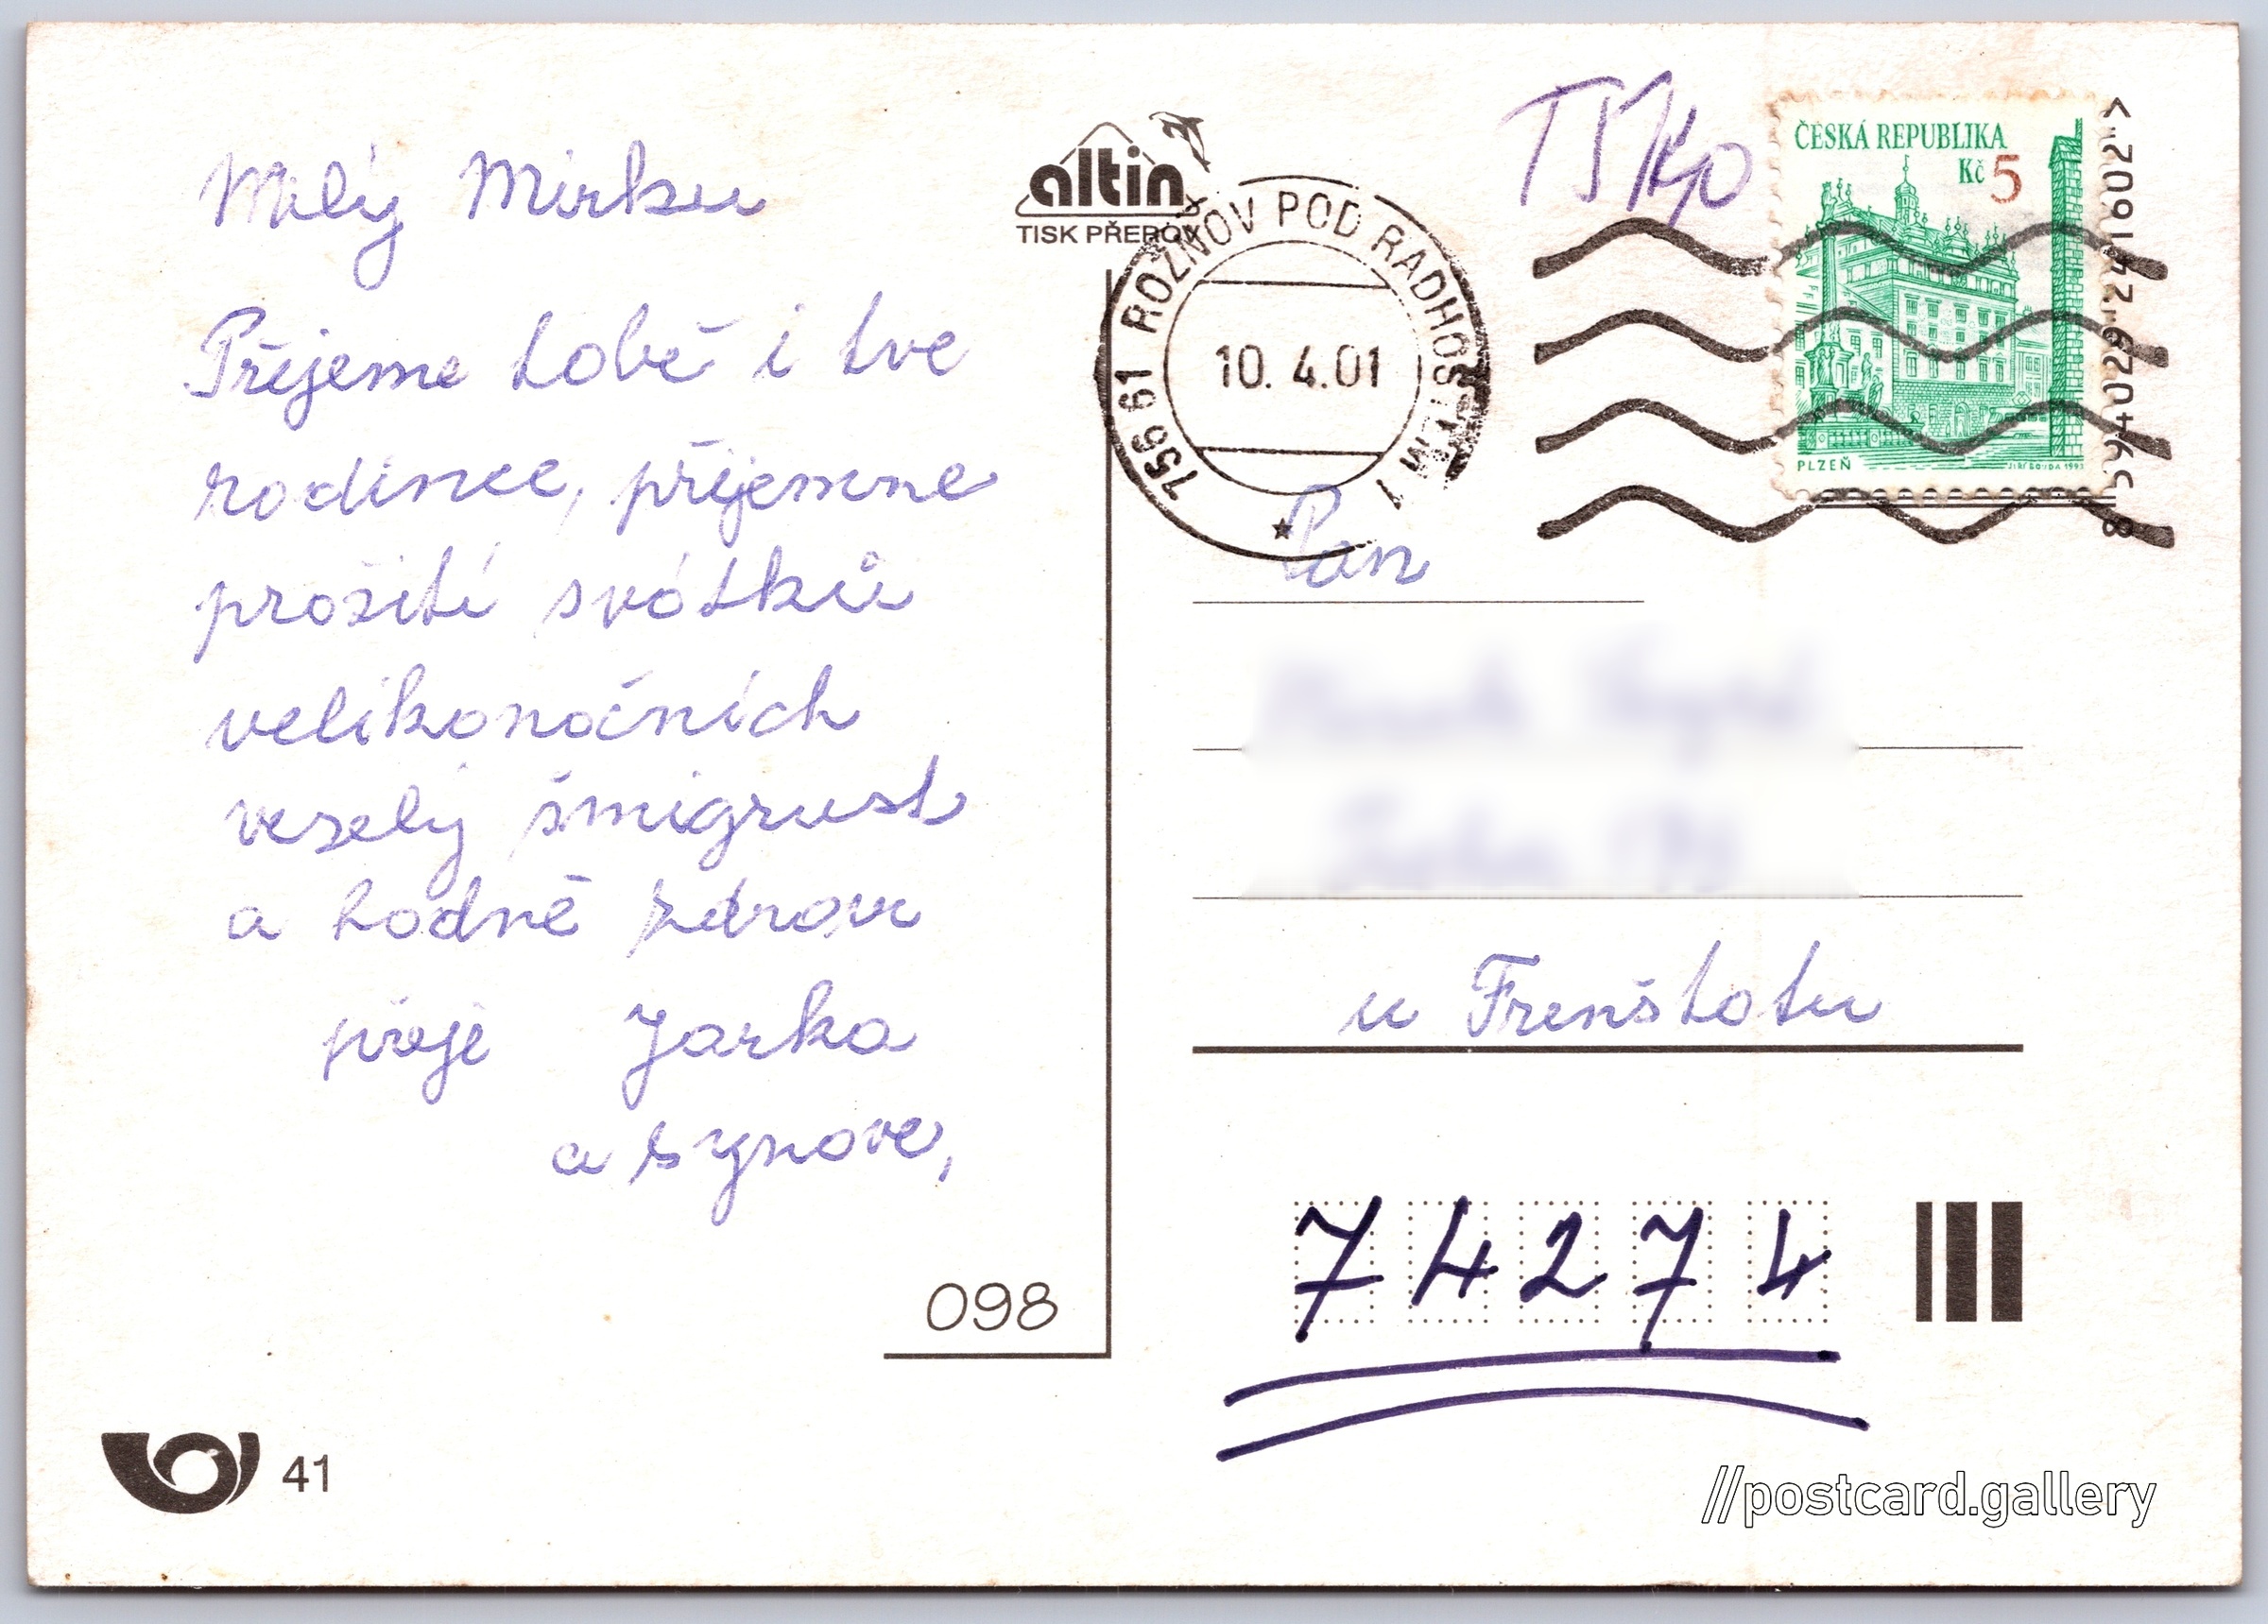 Milý Mirku
Přejeme tobě i tve
rodince, příjemne
prožití svátků
velikonočních
veselý šmigrust
a hodně zdravi
přeje Jarka
a synove,
098
41
altin
TISK PŘEROV
756 61 ROŽNOV POD RADHOŠTĚM 1
10. 4.01
ČESKÁ REPUBLIKA
Kč 5
PLZEŇ
JIŘÍ BOUDA 1993
Pan
u Frenštotu
74274
//postcard.gallery